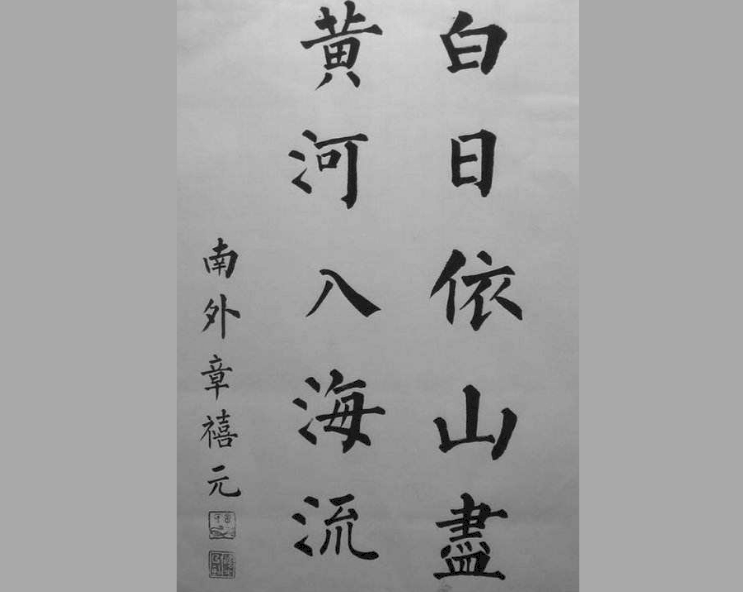 白日依山盡
黄河入海流
南外章禧元